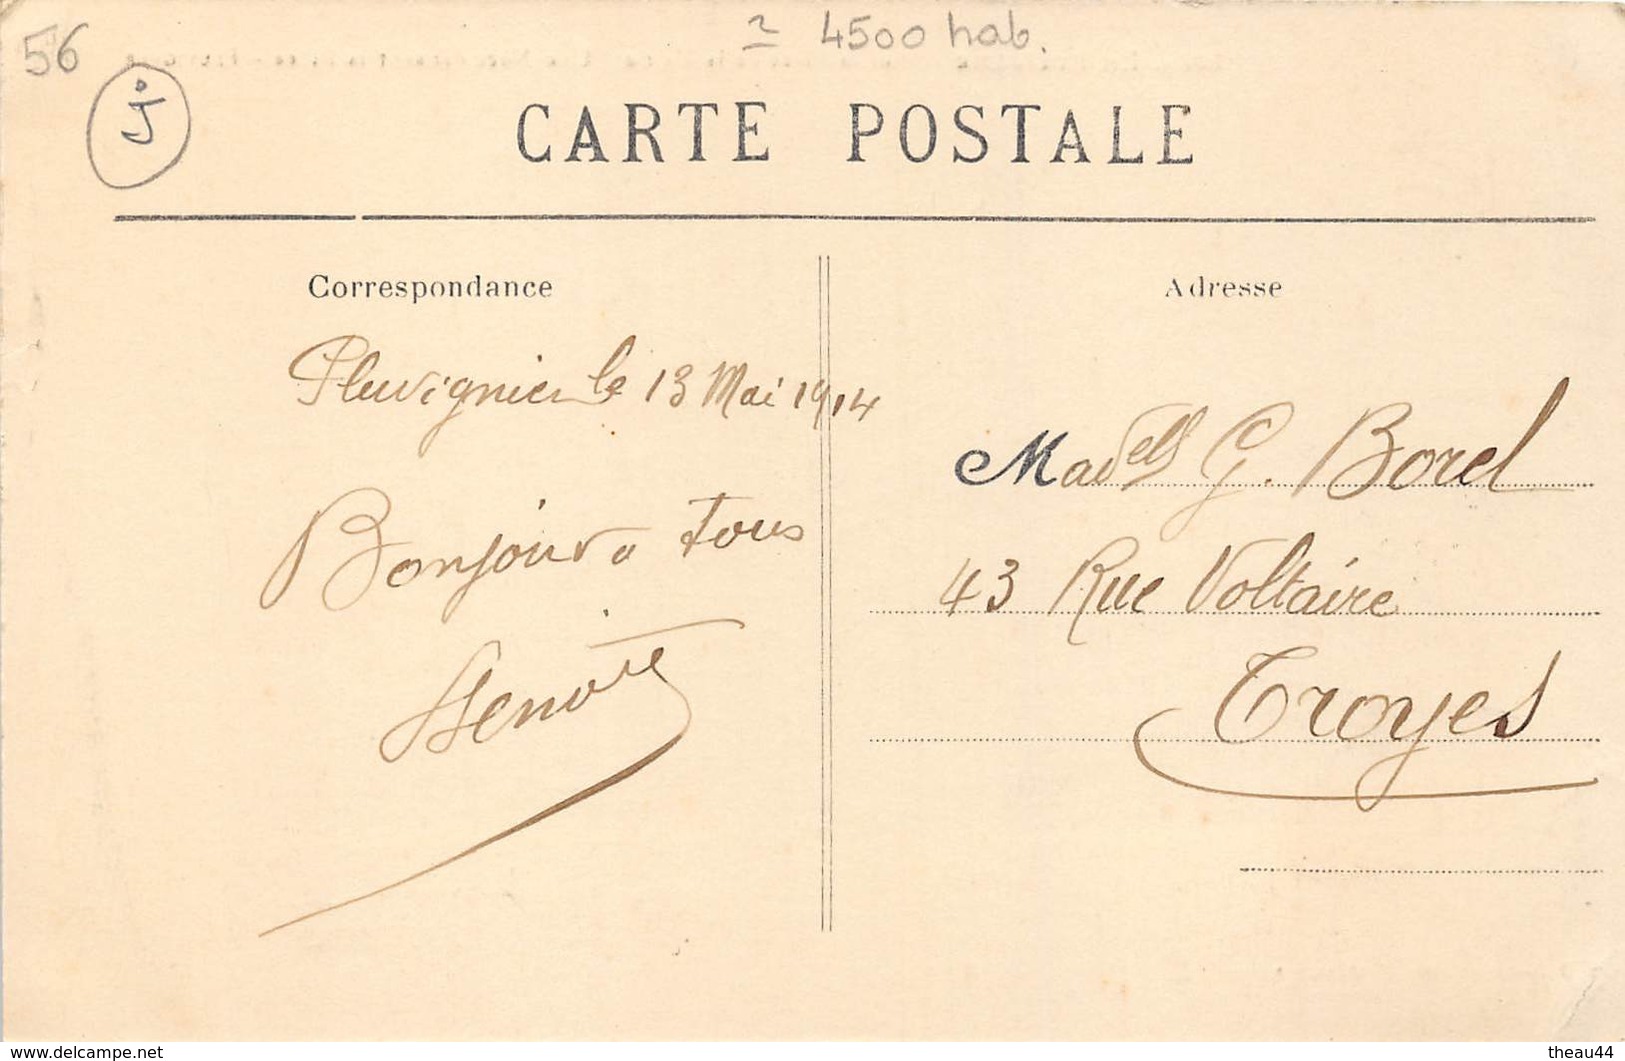 56
4500 hab.
CARTE POSTALE
Correspondance
Pluvignier le 13 Mai 1914
Bonjour a tous
Adresse
Madelle G. Borel
43 Rue Voltaire
Troyes
www.delcampe.net
theau44